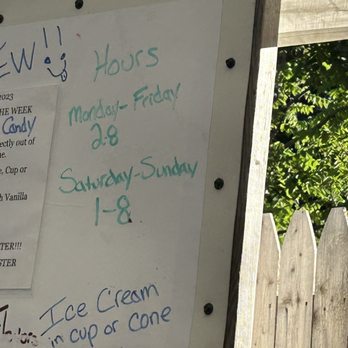 EW!!
Hours
Monday-Friday
2-8
Saturday-Sunday
1-8
2023
HE WEEK
Candy
ectly out of
ne.
e, Cup or
h Vanilla
TER!!!
STER
Ice Cream
in cup or cone